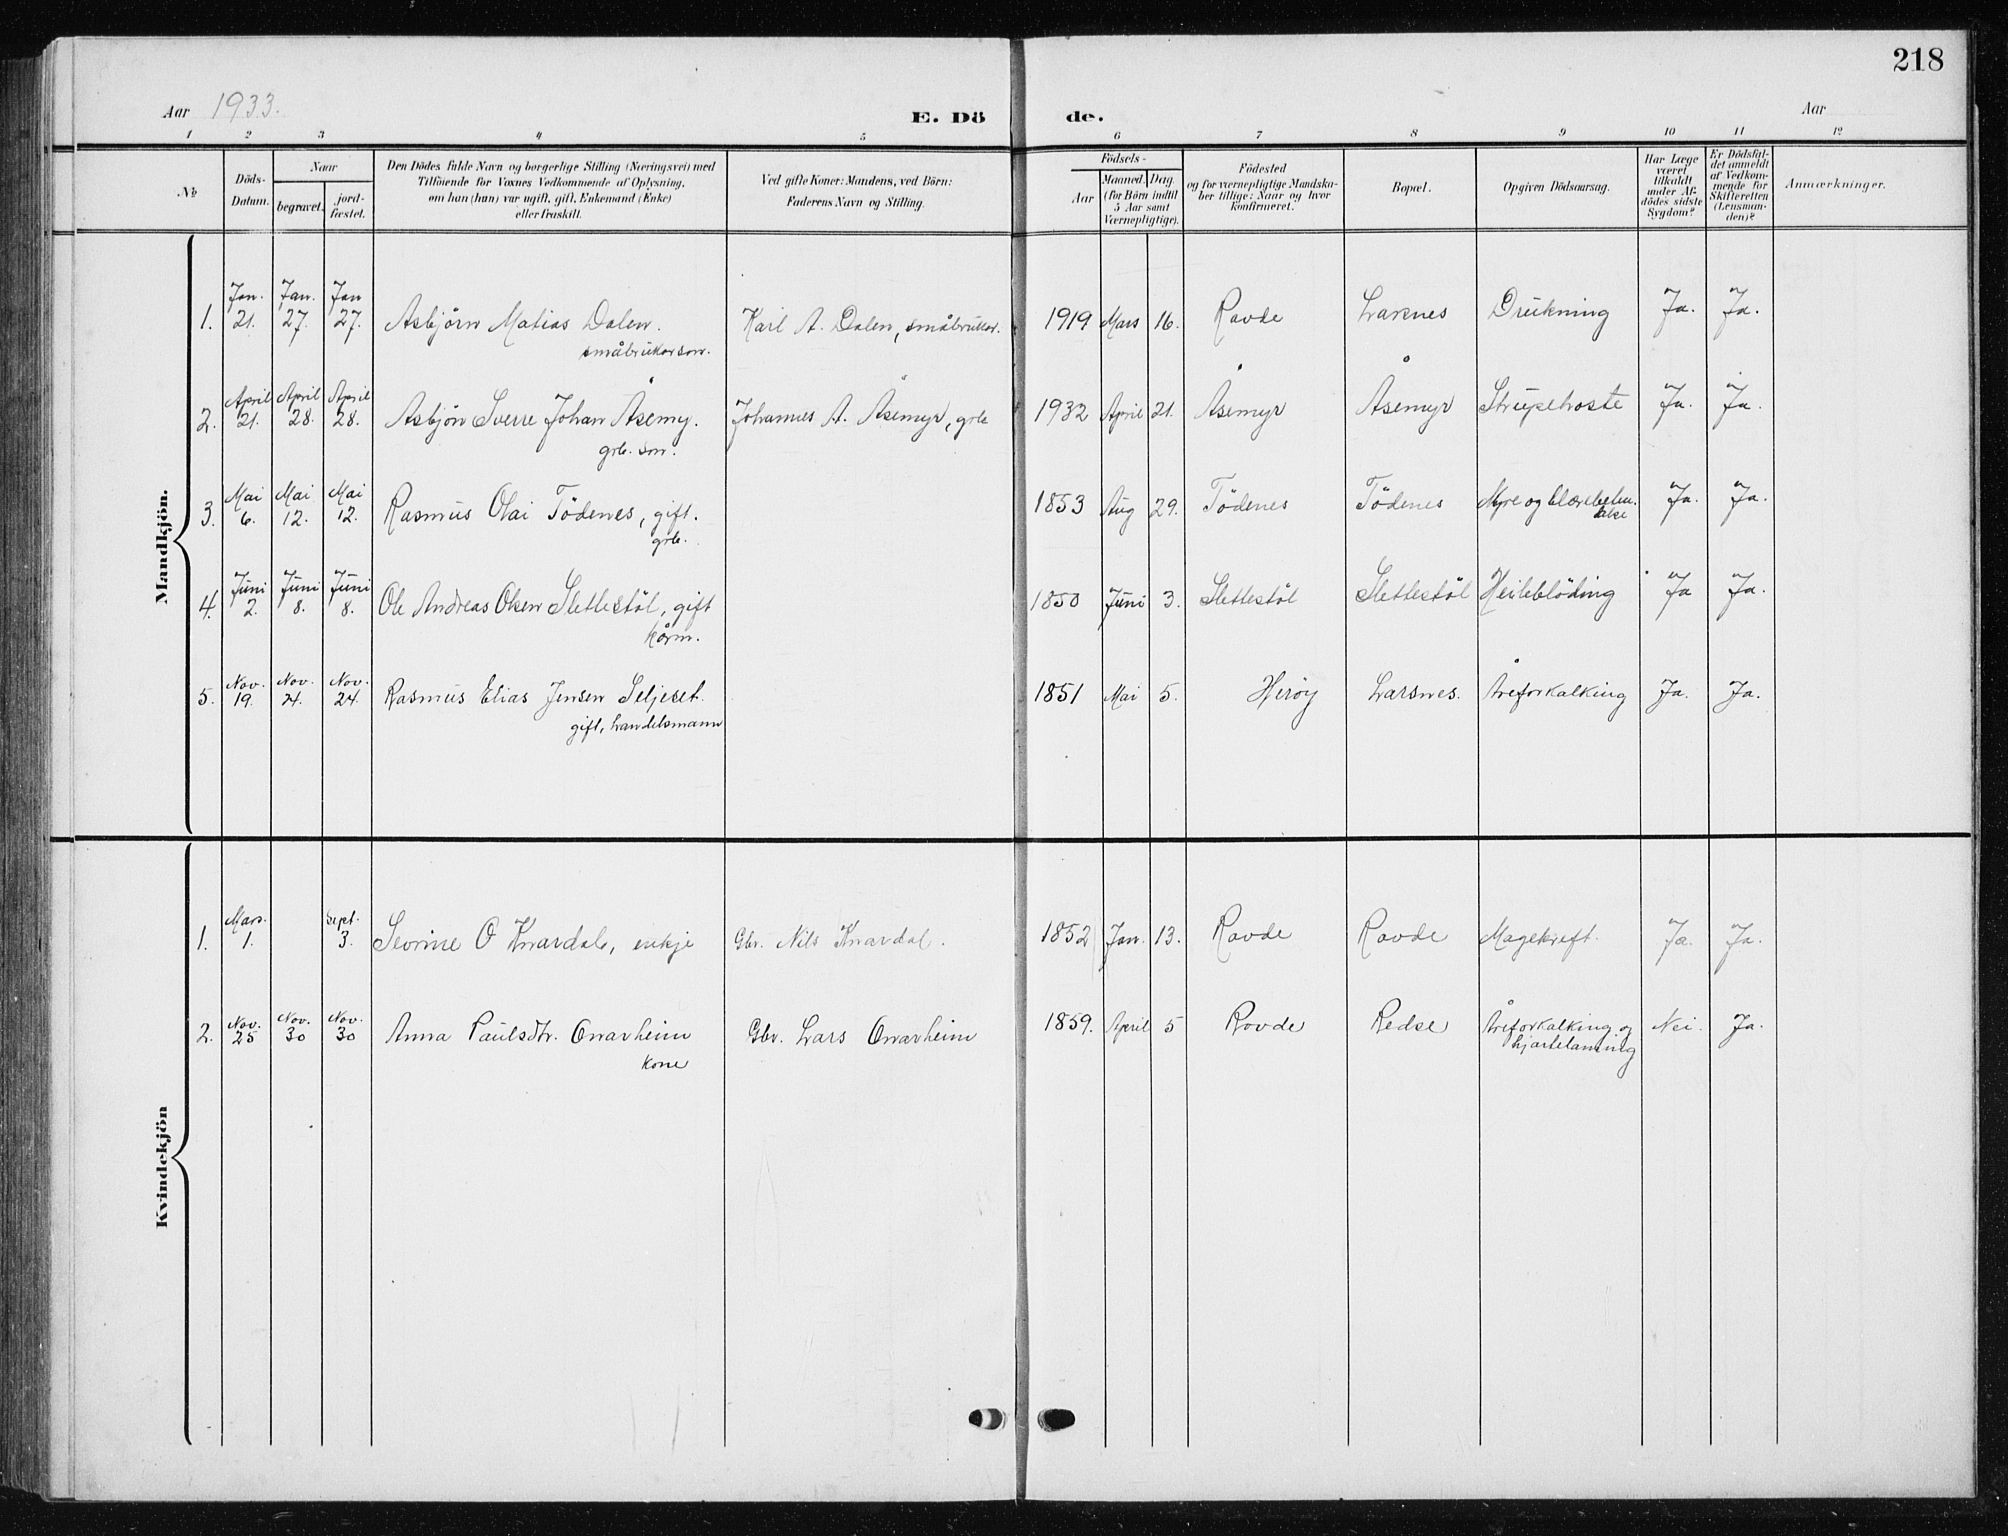 218
Aar 1933.
E. Dö de.
Aar
1 2 3 4 5 6 7 8 9 10 11 12
№
Döds-Datum.
Naar
begravet.
jord-fæstet.
Den Dödes fulde Navn og borgerlige Stilling (Næringsvei) med
Tilföiende for Voxnes Vedkommende af Oplysning,
om han (hun) var ugift, gift, Enkemand (Enke)
eller fraskilt.
Ved gifte Koner: Mandens, ved Börn:
Faderens Navn og Stilling.
Födsels-
Aar
Maaned. Dag.
(for Börn indtil
5 Aar samt
Værnepligtige).
Födested
og for værnepligtige Mandska-
ber tillige: Naar og hvor
konfirmeret.
Bopæl.
Opgiven Dödsaarsag.
Har Læge
været
tilkaldt
under Af-
dödes sidste
Sygdom?
Er Dödsfal-
det anmeldt
af Vedkom-
mende for
Skifteretten
(Lensman-
den)?
Anmærkninger.
Mandkjön.
1. Jan. 21. Jan. 27. Jan 27. Asbjörn Matias Dalen. Karl A. Dalen, småbrukar. 1919 Mars 16. Rovde Larsnes Drukning Ja. Ja.
småbrukarson.
2. April 21. April 28. April 28. Asbjörn Sverre Johan Åsemy. Johannes A. Åsemyr, grb. 1932 April 21. Åsemyr Åsemyr Strupehoste Ja. Ja.
grb. son.
3. Mai 6. Mai 12. Mai 12. Rasmus Olai Tödenes, gift. 1853 Aug 29. Tödenes Tödenes Nyre og blærebeten. Ja. Ja.
grb.
4. Juni 2. Juni 8. Juni 8. Ole Andreas Olsen Slettestöl, gift 1850 Juni 3. Slettestöl Slettestöl Heileblöding Ja Ja.
kårm.
5. Nov. 19. Nov. 24. Nov. 24. Rasmus Elias Jensen Seljeset. 1851 Mai 5. Heröy Larsnes. Åreforkalking Ja. Ja.
gift, handelsmann
Kvindekjön
1. Mars. 1. Sept. 3. Sevrine O Knardal, enkje Gbr. Nils Knardal. 1852 Jan. 13. Rovde Rovde Magekreft. Ja. Ja.
2. Nov. 25 Nov. 30 Nov. 30 Anna Paulsdtr. Orvarheim Gbr. Lars Orvarheim 1859. April 5 Rovde Redse Åreforkalking og Nei. Ja.
kone hjartelaming